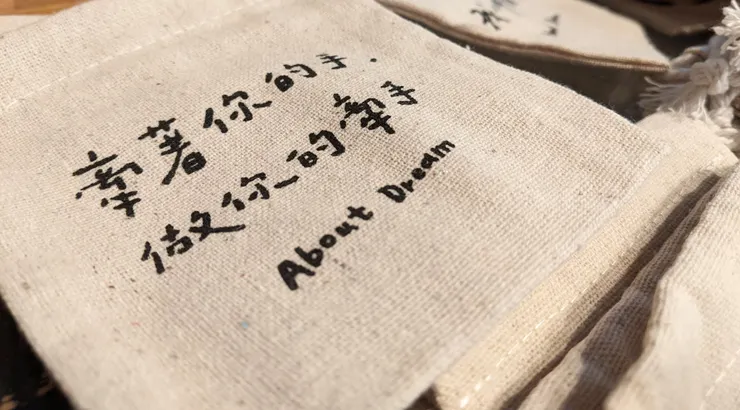 牽著你的手.
做你的牽手
About Dream